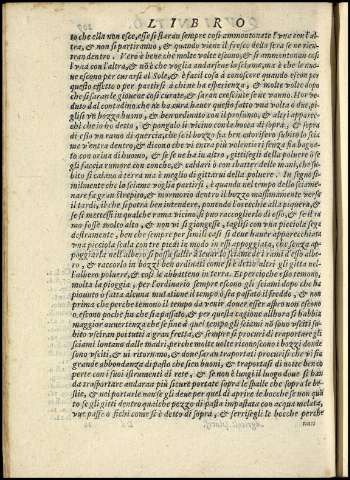 LIBRO
to che ella non esce, esse si staran sempre così ammontonate l'vna con l'al-
tra, & non si partiranno, & quando viene il fresco della sera se ne rien-
tran dentro. Vero è bene che molte volte escono, & si ammontonan così
l'vna con l'altra, & nõ è che voglia andarsene lo sciame, ma è che le
escono per curarsi al Sole, & facil cosa è conoscere quando escon per
questo effetto o per partirsi à chi ne ha esperienza, & molte volte dopo
che si saranno così curate, & saran cresciute se ne vanno. Hor
dal contadino che ne ha cura hauer questo fatto vna volta o due, pi-
gli vn bozzo buono, & ben ordinato con il profumo, & altri apparec-
chi che io ho detto, & pongalo li vicino con la bocca di sopra, & sopra
di esso vn ramo di quercia, che se il bozzo sta ben odorifero subito lo scia
me v'entra dentro, & dicono che vi entra più volentieri s'enza sia bagna-
to con orina di buomo, & se se ne va in alto, gittisegli della poluere ò se
gli faccia rumore con conche, & caldari ò con batter delle mani, che su-
bito si calano à terra ma è meglio di gittargli della poluere. In segno si-
milmente che lo sciame voglia partirsi, è quando nel tempo dello sciame-
nare fa gran strepito, & mormorio dentro il bozzo massimamente verso
il tardi, il che si potrà ben intendere, ponendo l'orecchie alla piquera, &
se si mettessi in qualche rama vicino, si può raccoglierlo di esso, & se il ra
mo fosse molto alto, & non vi si giongesse, taglisi con vna picciola sega
destramente, ben che sempre simili casi si deue hauere apparecchiata
vna picciola scala con tre piedi in modo in essi appoggiata, che senza ap-
poggiarla nell'albero si possa salir à scuoter lo sciame de i rami d'esso albe-
ro, & raccorlo in bozzi ben ordinati come si è detto altri gli gitta nel-
l'albero poluere, & così le abbattono in terra. Et percioche esso temono,
molta la pioggia, per l'ordinario sempre escono gli sciami dopo che ha
piouuto o fatta alcuna mutatione il tempo ò sia passato il freddo, & non
prima che perche temono la fortuna che ha, da venir, deuer esser aspro non escono
o escono poche fin che sia passato, & per questa cagione allhora si habbia
maggior auuertenza che se in ql qual tempo gli sciami nõ sono vsciti su-
bito vscian portati a gran fretta, & sempre si procuri di traportare gli
sciami lontano dalle madri, perche molte volte riconoscono i bozzi donde
sono vsciti, & ui ritornano, & doue saran traportati procurisi che vi sia
grande abbondanza di pasto che sieno buoni, & traportasi di notte ben co
perte con i suoi istrumenti di rete, & se non è lungi il luogo doue si han
da trasportare andaran più sicure portate sopra le spalle che sopra le be-
stie, & nel portarle non se gli deue per quel dì aprire le bocche se non qua
to se gli gitti dentro qualche pezzo di pasta impastata con acqua melata,
vue passe o fichi come si è detto di sopra, & serrisegli le bocche perche